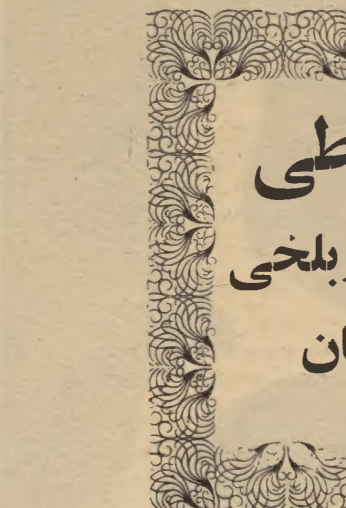 طی
ربلخی
ان